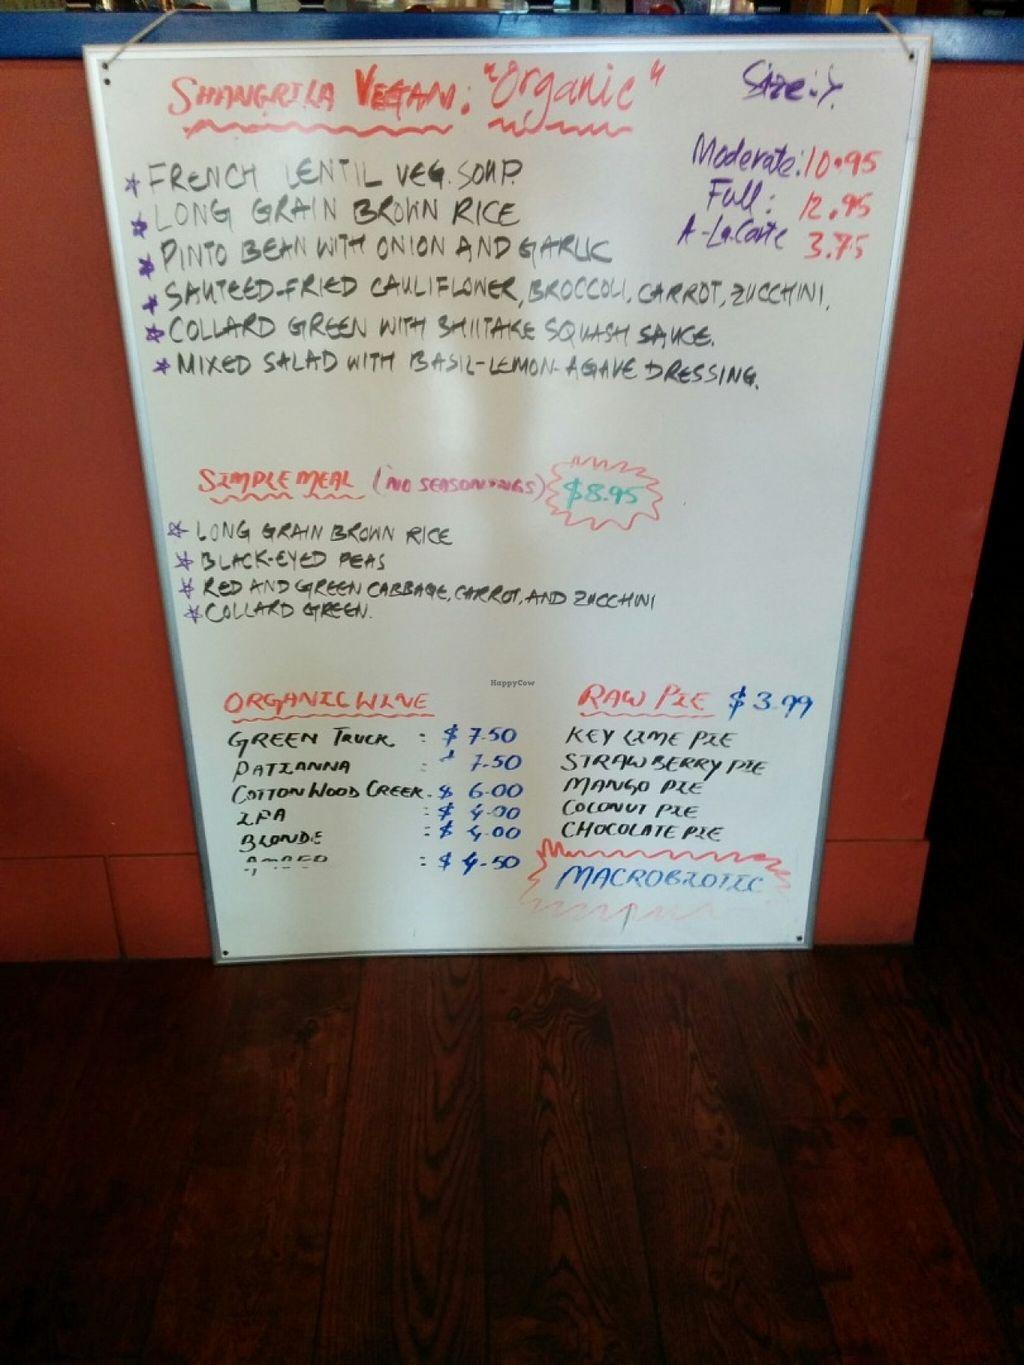 SHANGRILA VEGAN: "Organic"
Size:
Moderate: 10.95
Full: 12.95
A-La.Carte 3.75
FRENCH LENTIL VEG. SOUP.
LONG GRAIN BROWN RICE
PINTO BEAN WITH ONION AND GARLIC
SAUTEED-FRIED CAULIFLOWER, BROCCOLI, CARROT, ZUCCHINI.
COLLARD GREEN WITH SHIITAKE SQUASH SAUCE.
MIXED SALAD WITH BASIL-LEMON-AGAVE DRESSING.
SIMPLE MEAL (NO SEASONINGS) $8.95
LONG GRAIN BROWN RICE
BLACK-EYED PEAS
RED AND GREEN CABBAGE, CARROT, AND ZUCCHINI
COLLARD GREEN.
HappyCow
ORGANIC WINE
GREEN TRUCK : $ 7.50
PATIANNA : $ 7.50
COTTON WOOD CREEK. $ 6.00
IPA : $ 4.00
BLONDE : $ 4.00
: $ 4.50
RAW PIE $ 3.99
KEY LIME PIE
STRAWBERRY PIE
MANGO PIE
COCONUT PIE
CHOCOLATE PIE
MACROBIOTIC